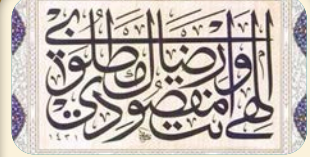 الهي انت مقصودي
ورضاك مطلوبي
١٤٣١